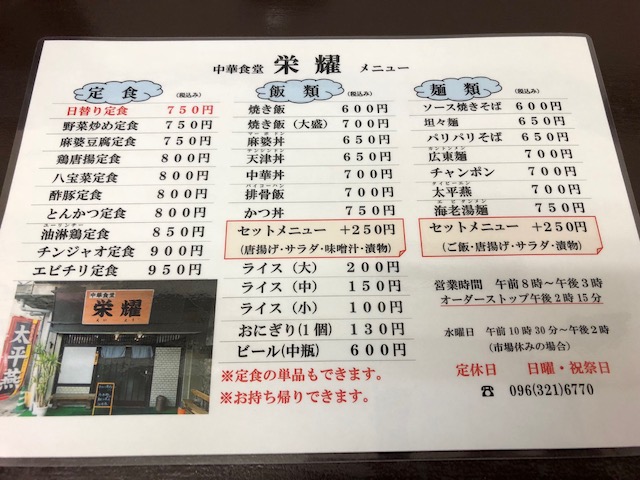 中華食堂 栄耀 メニュー
定食 (税込み)
日替り定食 750円
野菜炒め定食 750円
麻婆豆腐定食 750円
鶏唐揚定食 800円
八宝菜定食 800円
酢豚定食 800円
とんかつ定食 800円
ユーリンチー
油淋鶏定食 850円
チンジャオ定食 900円
エビチリ定食 950円
中華食堂
栄耀
太平燕
飯類 (税込み)
焼き飯 600円
焼き飯(大盛) 700円
マーボドン
麻婆丼 650円
テンシンドン
天津丼 650円
中華丼 700円
パイコーハン
排骨飯 700円
かつ丼 750円
セットメニュー +250円
(唐揚げ・サラダ・味噌汁・漬物)
ライス(大) 200円
ライス(中) 150円
ライス(小) 100円
おにぎり(1個) 130円
ビール(中瓶) 600円
※定食の単品もできます。
※お持ち帰りできます。
麺類 (税込み)
ソース焼きそば 600円
坦々麺 650円
パリパリそば 650円
カントンメン
広東麺 700円
チャンポン 700円
タイピーエン
太平燕 700円
エビタンメン
海老湯麺 750円
セットメニュー +250円
(ご飯・唐揚げ・サラダ・漬物)
営業時間 午前8時~午後3時
オーダーストップ午後2時15分
水曜日 午前10時30分~午後2時
(市場休みの場合)
定休日 日曜・祝祭日
☎ 096(321)6770